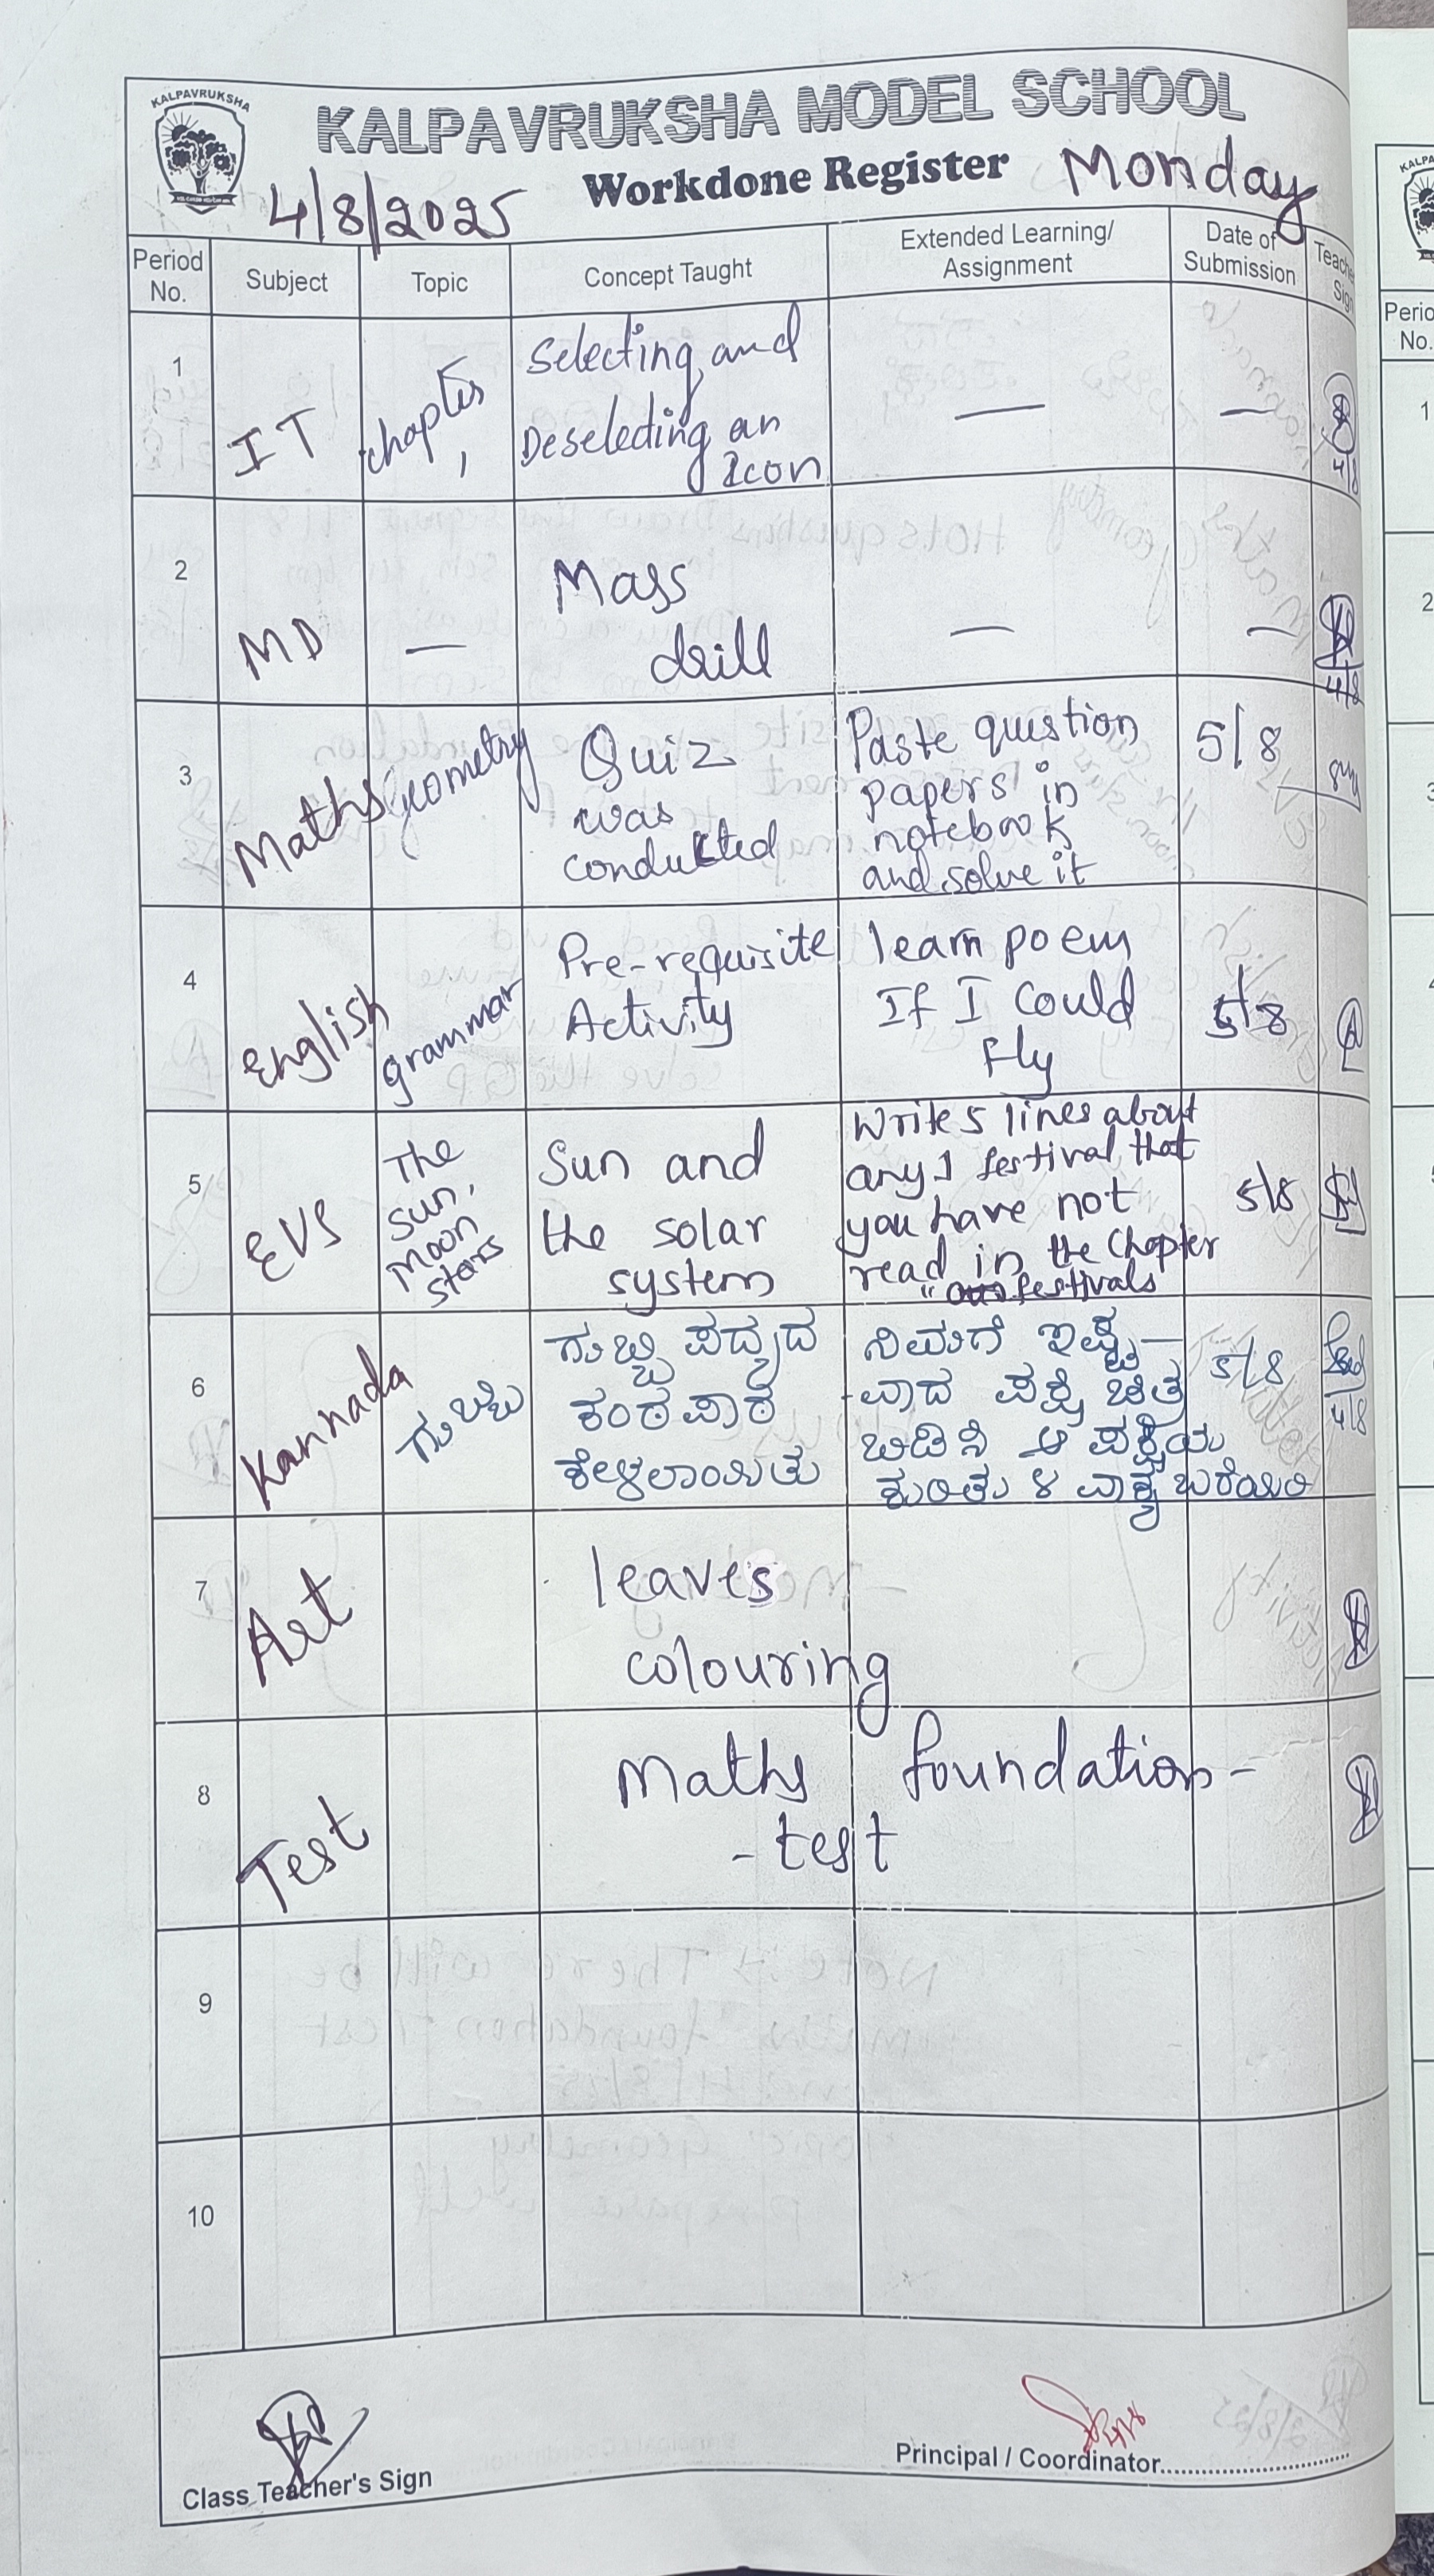 KALPAVRUKSHA
KALPAVRUKSHA MODEL SCHOOL
Workdone Register
Monday
4/8/2025
Period No.
Subject
Topic
Concept Taught
Extended Learning/
Assignment
Date of
Submission
1
IT
chapter
1
Selecting and
Deselecting an
Icon
—
—
4/8
2
MD
—
Mass
drill
—
—
4/8
3
Maths
Geometry
Quiz
was
conducted
Paste question
papers in
notebook
and solve it
5/8
4
English
grammar
Pre-requisite
Activity
learn poem
If I Could
Fly
5/8
5
EVS
The
Sun,
Moon
stars
Sun and
the solar
system
Write 5 lines about
any 1 festival that
you have not
read in the Chapter
"festivals
5/8
6
Kannada
ಗುಬ್ಬಿ
ಗುಬ್ಬಿ ಪದ್ಯದ
ಕಂಠಪಾಠ
ಕೇಳಲಾಯಿತು
ನಿಮಗೆ ಇಷ್ಟ—
-ವಾದ ಪಕ್ಷಿ ಚಿತ್ರ
ಬಿಡಿಸಿ ಆ ಪಕ್ಷಿಯ
ಕುರಿತು ೪ ವಾಕ್ಯ ಬರೆಯಿರಿ
5/8
4/8
7
Art
leaves
colouring
8
Test
Maths foundation-
-test
9
10
Class Teacher's Sign
Principal / Coordinator